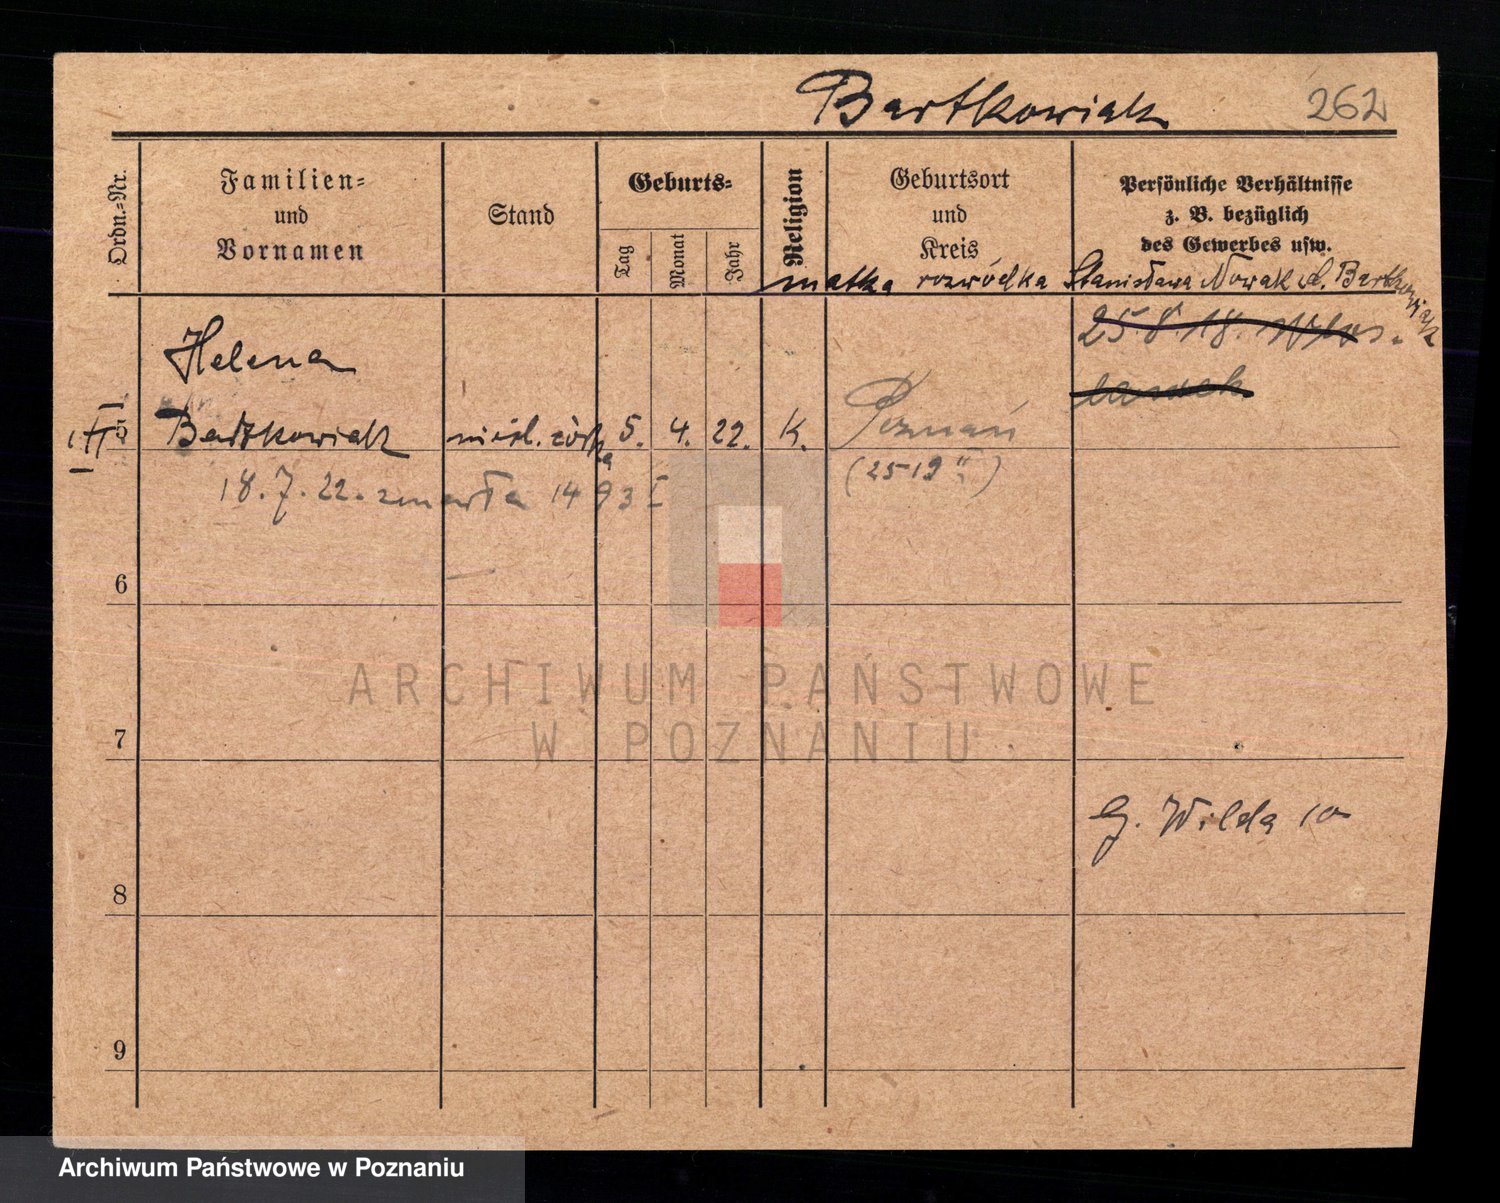 Bartkowiak 262
Ordn.=Nr.
Familien=
und
Vornamen
Stand
Geburts=
Tag
Monat
Jahr
Religion
Geburtsort
und
Kreis
Persönliche Verhältnisse
z. B. bezüglich
des Gewerbes usw.
matka rozwódka Stanisława Nowak d. Bartkowiak
25 8. 18.
Helena
5 Bartkowiak nieśl. córka 5. 4. 22. K. Poznań
18. 7. 22. zmarła 1493 I
(2519 II)
6
7
G. Wilda 10
8
9
ARCHIWUM PAŃSTWOWE
W POZNANIU
Archiwum Państwowe w Poznaniu